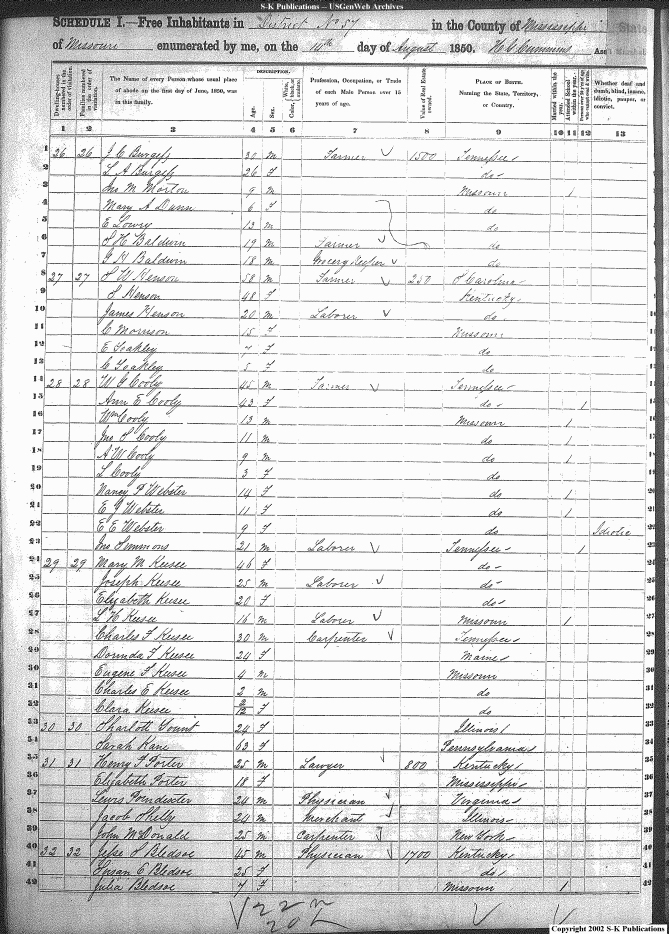 S-K Publications -- USGenWeb Archives
SCHEDULE I.—Free Inhabitants in District No 57 in the County of Mississippi State
of Missouri enumerated by me, on the 14th day of August 1850. Ass't Marshal
Dwelling-houses numbered in the order of visitation.
Families numbered in the order of visitation.
The Name of every Person whose usual place of abode on the first day of June, 1850, was in this family.
DESCRIPTION.
Age.
Sex.
Color, White, black, or mulatto.
Profession, Occupation, or Trade of each Male Person over 15 years of age.
Value of Real Estate owned.
PLACE OF BIRTH.
Naming the State, Territory, or Country.
Married within the year.
Attended School within the year.
Whether deaf and dumb, blind, insane, idiotic, pauper, or convict.
1 2 3 4 5 6 7 8 9 10 11 12 13
1 26 26 J C Burgess 30 m Farmer 1500 Tennessee
2 L A Burgess 26 F do
3 Jno M Morton 9 m Missouri 1
4 Mary A Dunn 6 F do
5 E Lowry 13 m do
6 S H Baldwin 19 m Farmer do
7 J H Baldwin 18 m Grocery Keeper do
8 27 27 S W Henson 58 m Farmer 250 S Carolina
9 S Henson 48 F Kentucky
10 James Henson 20 m Laborer do
11 C Morrison 15 F Missouri
12 E Toakley 7 F do
13 C Toakley 5 F do
14 28 28 W J Cooly 45 m Farmer Tennessee
15 Ann E Cooly 43 F do 1
16 Wm Cooly 13 m Missouri 1
17 Jno S Cooly 11 m do 1
18 A W Cooly 9 m do 1
19 L Cooly 3 F do
20 Nancy P Webster 14 F do 1
21 E J Webster 11 F do 1
22 E E Webster 9 F do Idiotic
23 Jno Simmons 21 m Laborer Tennessee 1
24 29 29 Mary M Keesee 46 F do
25 Joseph Keesee 25 m Laborer do
26 Elizabeth Keesee 20 F do
27 L H Keesee 16 m Laborer Missouri 1
28 Charles F Keesee 30 m Carpenter Tennessee
29 Dorinda F Keesee 24 F Maine
30 Eugene F Keesee 4 m Missouri
31 Charles E Keesee 2 m do
32 Clara Keesee 2/12 F do
33 30 30 Charlott Yount 24 F Illinois
34 Sarah Kane 63 F Pennsylvania
35 31 31 Henry P Porter 25 m Lawyer 800 Kentucky
36 Elizabeth Porter 18 F Mississippi
37 Lewis Poindexter 24 m Physician Virginia
38 Jacob Shelly 24 m Merchant Illinois
39 John McDonald 25 m Carpenter New York
40 32 32 Jesse S Bledsoe 45 m Physician 1700 Kentucky
41 Susan E Bledsoe 25 F do
42 Julia Bledsoe 7 F Missouri 1
22 m
20 F
Copyright 2002 S-K Publications